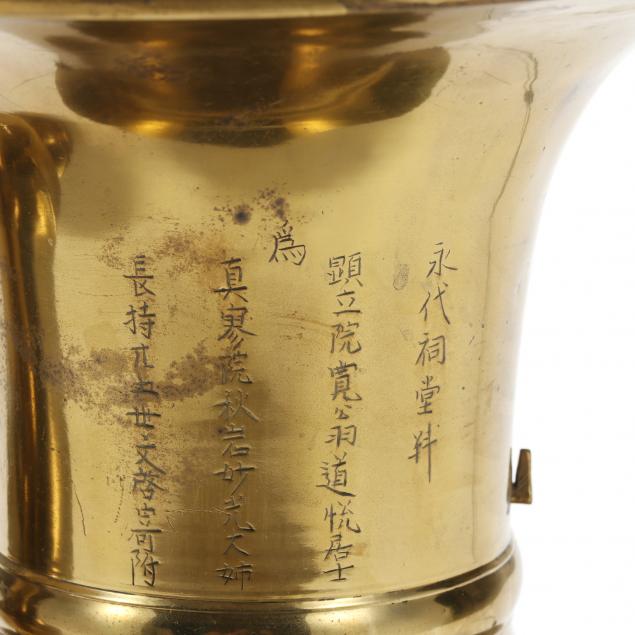 永代祠堂
為
顕立院寛翁道悦居士
真寥院秋岩妙光大姉
長持 世文啓 附